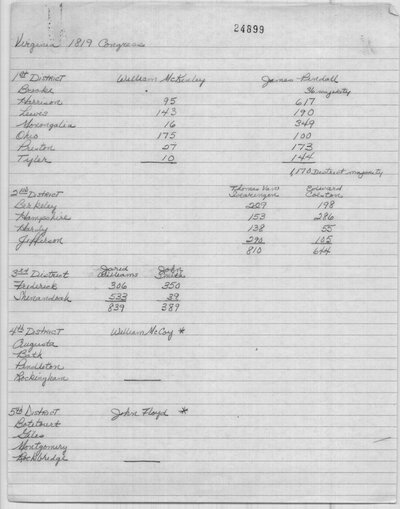 24899
Virginia 1819 Congress
1st District William McKinley James Pindall
Brooke 36 majority
Harrison 95 617
Lewis 143 190
Monongalia 16 349
Ohio 175 100
Preston 27 173
Tyler 10 144
1170 District majority
2nd District Thomas Van Swearingen Edward Colston
Berkeley 229 198
Hampshire 153 286
Hardy 138 55
Jefferson 290 105
810 644
3rd District Jared Williams John Smith
Frederick 306 350
Shenandoah 533 39
839 389
4th District William McCoy *
Augusta
Bath
Pendleton
Rockingham
5th District John Floyd *
Botetourt
Giles
Montgomery
Rockbridge